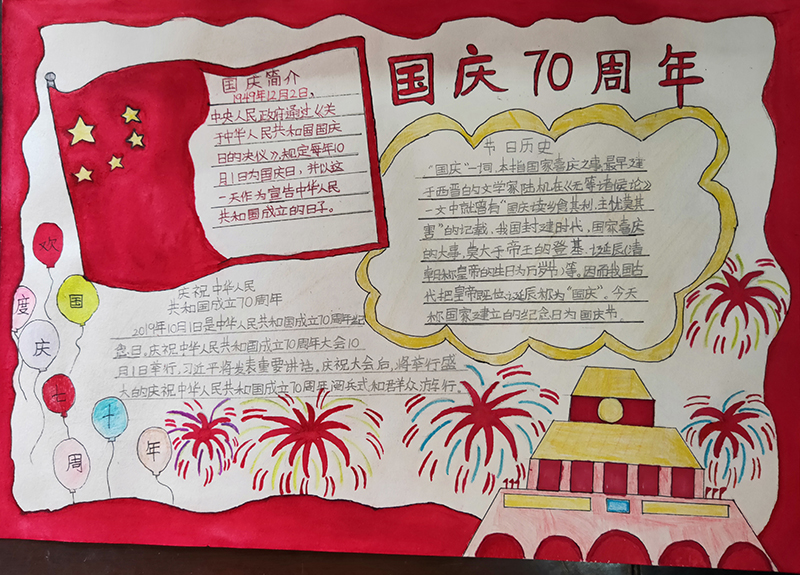 国庆70周年
国庆简介
1949年12月2日,
中央人民政府通过《关
于中华人民共和国国庆
日的决议》,规定每年10
月1日为国庆日,并以这
一天作为宣告中华人民
共和国成立的日子。
节日历史
“国庆”一词,本指国家喜庆之事,最早见
于西晋的文学家陆机在《五等诸侯论》
一文中就曾有“国庆独飨其利,主忧莫其
害”的记载,我国封建时代,国家喜庆
的大事,莫大于帝王的登基、诞辰(清
朝称皇帝的生日为万岁节)等。因而我国古
代把皇帝即位、诞辰称为“国庆”。今天
称国家建立的纪念日为国庆节
庆祝中华人民
共和国成立70周年
2019年10月1日是中华人民共和国成立70周年纪
念日,庆祝中华人民共和国成立70周年大会10
月1日举行,习近平将发表重要讲话。庆祝大会后,将举行盛
大的庆祝中华人民共和国成立70周年阅兵式和群众游行.
欢
度
国
庆
七
十
周
年